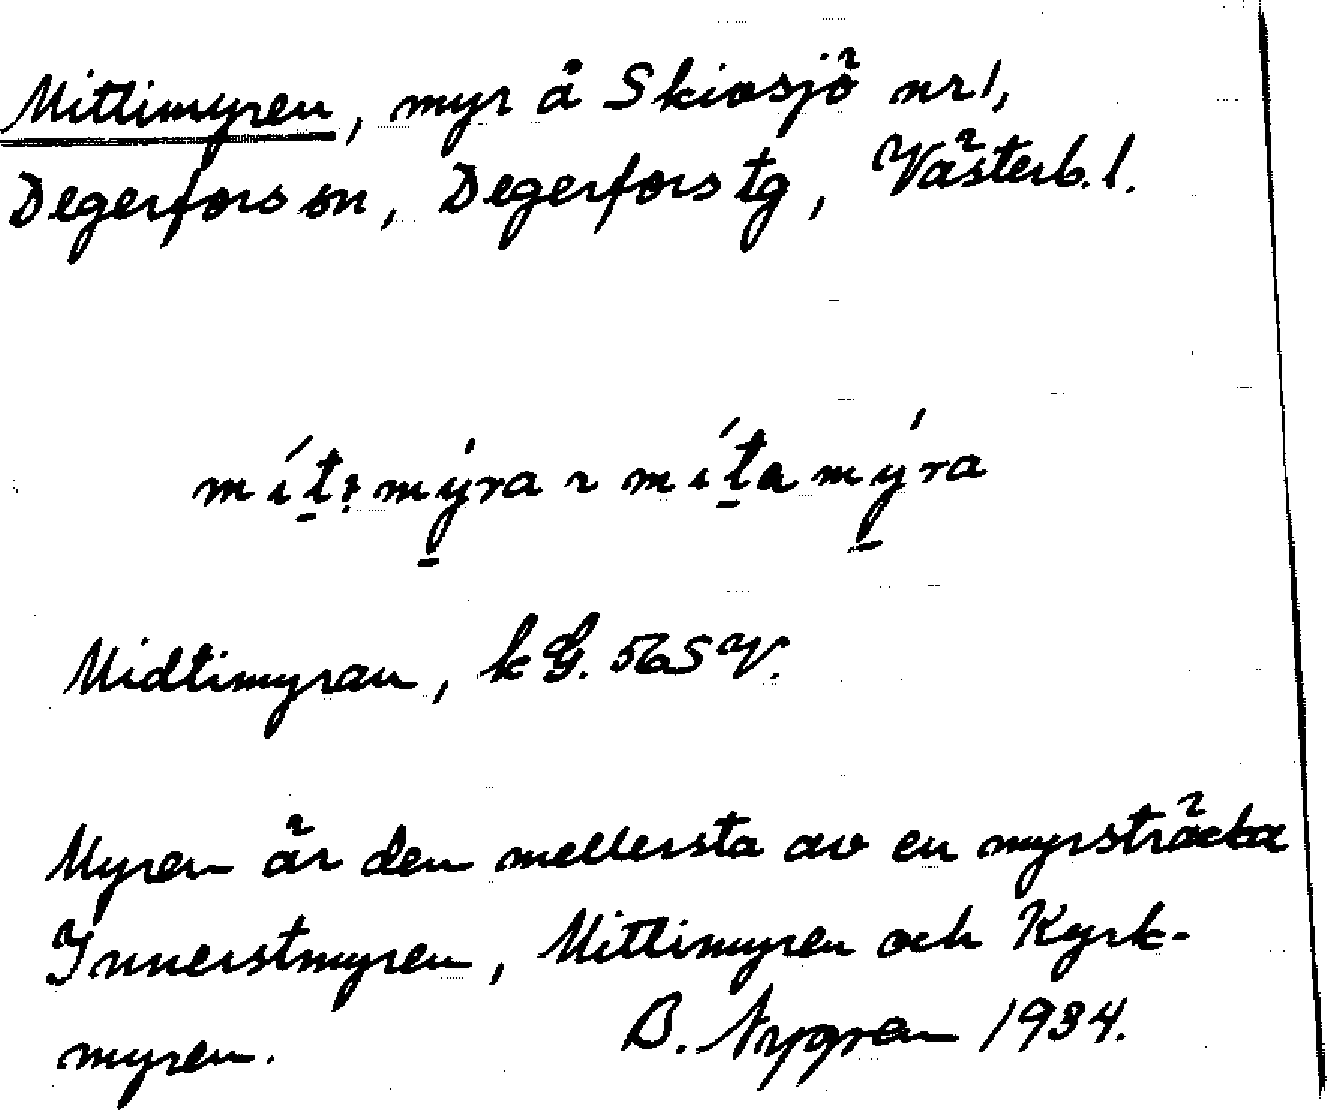 Mittimyren, myr å Skivsjö nr 1,
Degerfors sn, Degerfors tg, Västerb. l.
mít̠ı mý̠ra ~ mít̠a mý̠ra
Midtimyran, kG. 56SV.
Myren är den mellersta av en myrsträcka
Innerstmyren, Mittimyren och Kyrk-
myren. B. Nygren 1934.